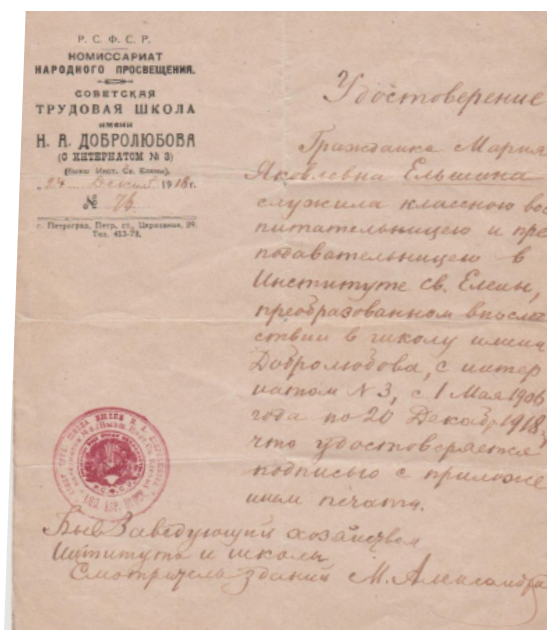 Р. С. Ф. С. Р.
КОМИССАРИАТ
НАРОДНОГО ПРОСВЕЩЕНИЯ.
СОВЕТСКАЯ
ТРУДОВАЯ ШКОЛА
имени
Н. А. ДОБРОЛЮБОВА
(С ИНТЕРНАТОМ № 3)
(бывш Инст. Св. Елены).
„24 Декаб 1918 г.
№ 76
г. Петроград, Петр. ст., Церковная, 29.
Тел. 413-78.
Удостоверение
Гражданка Мария
Яковлевна Ельшина
служила классною вос
питательницею и пре
подавательницею в
Институте св. Елены,
преобразованном впослѣд
ствии в школу имени
Добролюбова, с интер
натом N 3, с 1 Мая 1906
года по 20 Декабр 1918,
что удостоверяется
подписью с приложе
нием печати.
Быв Заведующий хозяйством
Института и школы
Смотритель здания М. Александро